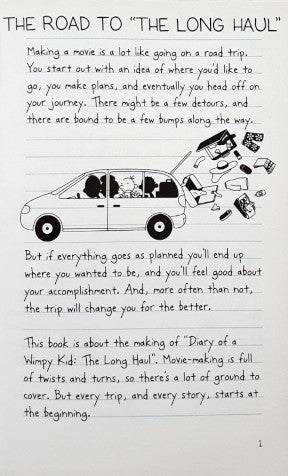 THE ROAD TO "THE LONG HAUL"
Making a movie is a lot like going on a road trip.
You start out with an idea of where you'd like to
go, you make plans, and eventually you head off on
your journey. There might be a few detours, and
there are bound to be a few bumps along the way.
But if everything goes as planned you'll end up
where you wanted to be, and you'll feel good about
your accomplishment. And, more often than not,
the trip will change you for the better.
This book is about the making of "Diary of a
Wimpy Kid: The Long Haul". Movie-making is full
of twists and turns, so there's a lot of ground to
cover. But every trip, and every story, starts at
the beginning.
1